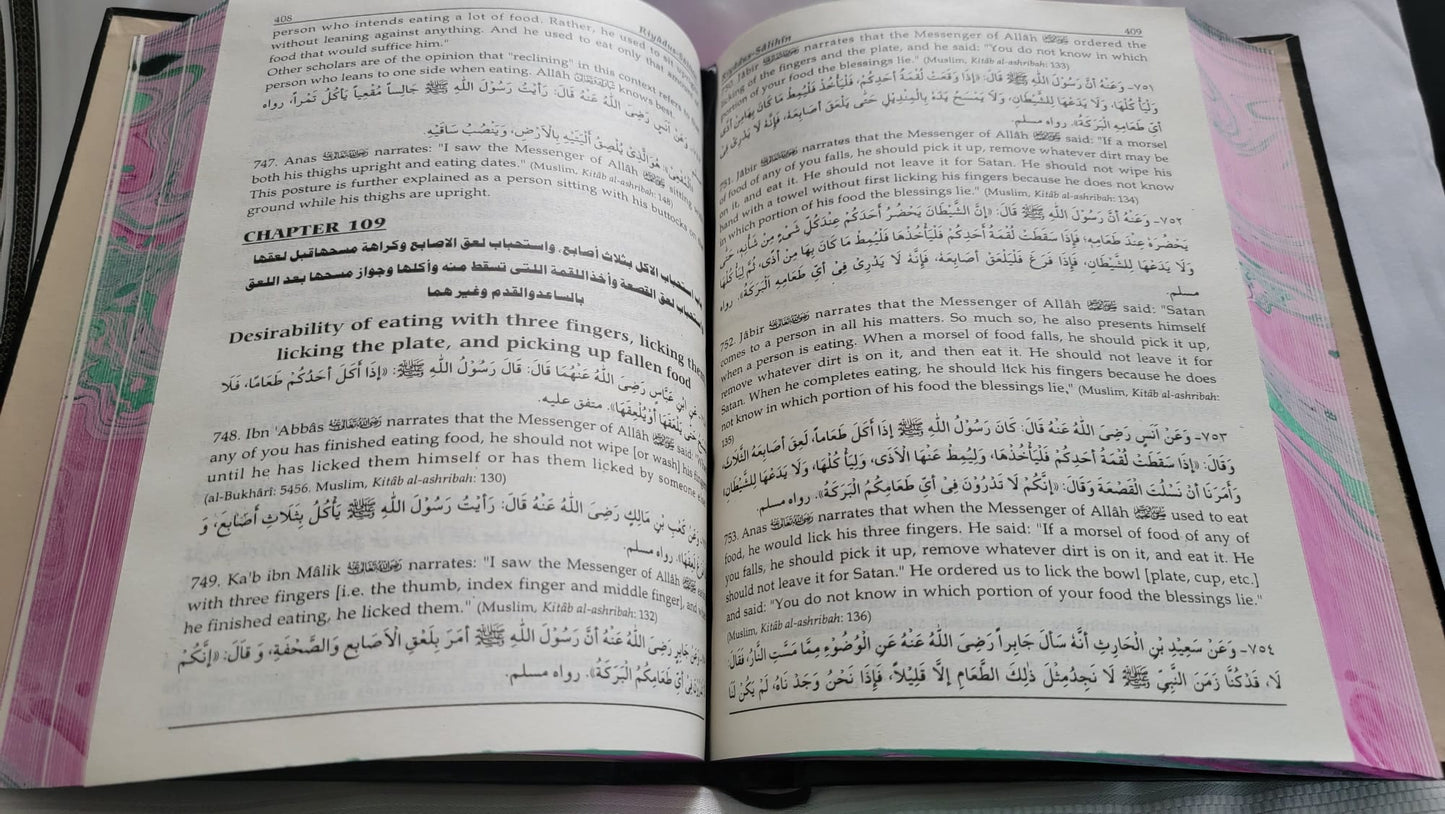 408
Riyâdus-Sâlihîn
person who intends eating a lot of food. Rather, he used to sit upright
without leaning against anything. And he used to eat only that amount
food that would suffice him."
Other scholars are of the opinion that "reclining" in this context refers
person who leans to one side when eating. Allâh knows best.
وَعَنْ أَنَسٍ رَضِىَ اللّٰهُ عَنْهُ قَالَ: رَأَيْتُ رَسُوْلَ اللّٰهِ ﷺ جَالِساً مُقْعِياً يَأْكُلُ تَمْراً، رواه
هُوَ الَّذِىْ يُلْصِقُ أَلْيَتَيْهِ بِالْأَرْضِ، وَيَنْصُبُ سَاقَيْهِ.
747. Anas ؓ narrates: "I saw the Messenger of Allâh ﷺ sitting
both his thighs upright and eating dates." (Muslim, Kitâb al-ashribah: 148)
This posture is further explained as a person sitting with his buttocks on the
ground while his thighs are upright.
CHAPTER 109
استحباب الاكل بثلاث أصابع، واستحباب لعق الاصابع وكراهة مسحها قبل لعقها
واستحباب لعق القصعة وأخذ اللقمة اللتى تسقط منه وأكلها وجواز مسحها بعد اللعق
بالساعد والقدم وغير هما
Desirability of eating with three fingers, licking them,
licking the plate, and picking up fallen food
عَنِ ابْنِ عَبَّاسٍ رَضِىَ اللّٰهُ عَنْهُمَا قَالَ: قَالَ رَسُوْلُ اللّٰهِ ﷺ: «إِذَا أَكَلَ أَحَدُكُمْ طَعَامًا، فَلَا
حَتّٰى يَلْعَقَهَا أَوْ يُلْعِقَهَا». متفق عليه.
748. Ibn 'Abbâs ؓ narrates that the Messenger of Allâh ﷺ said:
any of you has finished eating food, he should not wipe [or wash] his fingers
until he has licked them himself or has them licked by someone else."
(al-Bukhârî: 5456. Muslim, Kitâb al-ashribah: 130)
وَعَنْ كَعْبِ بْنِ مَالِكٍ رَضِىَ اللّٰهُ عَنْهُ قَالَ: رَأَيْتُ رَسُوْلَ اللّٰهِ ﷺ يَأْكُلُ بِثَلَاثِ أَصَابِعَ، وَ
لَعِقَهَا». رواه مسلم.
749. Ka'b ibn Mâlik ؓ narrates: "I saw the Messenger of Allâh ﷺ
with three fingers [i.e. the thumb, index finger and middle finger], and
he finished eating, he licked them." (Muslim, Kitâb al-ashribah: 132)
وَعَنْ جَابِرٍ رَضِىَ اللّٰهُ عَنْهُ أَنَّ رَسُوْلَ اللّٰهِ ﷺ أَمَرَ بِلَعْقِ الْاَصَابِعِ وَالصَّحْفَةِ، وَ قَالَ: «إِنَّكُمْ
تَدْرُوْنَ فِىْ أَيِّ طَعَامِكُمُ الْبَرَكَةُ». رواه مسلم.
Riyâdus-Sâlihîn
409
750. Jâbir ؓ narrates that the Messenger of Allâh ﷺ ordered the
licking of the fingers and the plate, and he said: "You do not know in which
portion of your food the blessings lie." (Muslim, Kitâb al-ashribah: 133)
٧٥١- وَعَنْهُ أَنَّ رَسُوْلَ اللّٰهِ ﷺ قَالَ: «إِذَا وَقَعَتْ لُقْمَةُ أَحَدِكُمْ، فَلْيَأْخُذْ فَلْيُمِطْ مَا كَانَ بِهَا مِنْ أَذًى
وَلْيَأْ كُلْهَا، وَلَا يَدَعْهَا لِلشَّيْطَانِ، وَلَا يَمْسَحْ يَدَهُ بِالْمِنْدِيْلِ حَتّٰى يَلْعَقَ أَصَابِعَهُ، فَإِنَّهُ لَا يَدْرِىْ فِىْ
أَيِّ طَعَامِهِ الْبَرَكَةُ». رواه مسلم.
751. Jâbir ؓ narrates that the Messenger of Allâh ﷺ said: "If a morsel
of food of any of you falls, he should pick it up, remove whatever dirt may be
on it, and eat it. He should not leave it for Satan. He should not wipe his
hand with a towel without first licking his fingers because he does not know
in which portion of his food the blessings lie." (Muslim, Kitâb al-ashribah: 134)
٧٥٢- وَعَنْهُ أَنَّ رَسُوْلَ اللّٰهِ ﷺ قَالَ: «إِنَّ الشَّيْطَانَ يَحْضُرُ أَحَدَكُمْ عِنْدَ كُلِّ شَىْءٍ مِنْ شَأْنِهِ، حَتّٰى
يَحْضُرَهُ عِنْدَ طَعَامِهِ؛ فَإِذَا سَقَطَتْ لُقْمَةُ أَحَدِكُمْ فَلْيَأْخُذْهَا فَلْيُمِطْ مَا كَانَ بِهَا مِنْ أَذًى، ثُمَّ لِيَأْ كُلْهَا
وَلَا يَدَعْهَا لِلشَّيْطَانِ، فَإِذَا فَرَغَ فَلْيَلْعَقْ أَصَابِعَهُ، فَإِنَّهُ لَا يَدْرِىْ فِىْ أَيِّ طَعَامِهِ الْبَرَكَةُ». رواه
مسلم.
752. Jâbir ؓ narrates that the Messenger of Allâh ﷺ said: "Satan
comes to a person in all his matters. So much so, he also presents himself
when a person is eating. When a morsel of food falls, he should pick it up,
remove whatever dirt is on it, and then eat it. He should not leave it for
Satan. When he completes eating, he should lick his fingers because he does
not know in which portion of his food the blessings lie," (Muslim, Kitâb al-ashribah:
135)
٧٥٣- وَعَنْ أَنَسٍ رَضِىَ اللّٰهُ عَنْهُ قَالَ: كَانَ رَسُوْلُ اللّٰهِ ﷺ إِذَا أَكَلَ طَعَاماً، لَعِقَ أَصَابِعَهُ الثَّلَاثَ،
وَقَالَ: «إِذَا سَقَطَتْ لُقْمَةُ أَحَدِكُمْ فَلْيَأْخُذْهَا، وَلْيُمِطْ عَنْهَا الْاَذَى، وَلْيَأْ كُلْهَا، وَلَا يَدَعْهَا لِلشَّيْطَانِ»
وَأَمَرَنَا أَنْ نَسْلُتَ الْقَصْعَةَ وَقَالَ: «إِنَّكُمْ لَا تَدْرُوْنَ فِىْ أَيِّ طَعَامِكُمُ الْبَرَكَةُ». رواه مسلم.
753. Anas ؓ narrates that when the Messenger of Allâh ﷺ used to eat
food, he would lick his three fingers. He said: "If a morsel of food of any of
you falls, he should pick it up, remove whatever dirt is on it, and eat it. He
should not leave it for Satan." He ordered us to lick the bowl [plate, cup, etc.]
and said: "You do not know in which portion of your food the blessings lie."
(Muslim, Kitâb al-ashribah: 136)
٧٥٤- وَعَنْ سَعِيْدِ بْنِ الْحَارِثِ أَنَّهُ سَأَلَ جَابِراً رَضِىَ اللّٰهُ عَنْهُ عَنِ الْوُضُوْءِ مِمَّا مَسَّتِ النَّارُ، فَقَالَ:
لَا، قَدْ كُنَّا زَمَنَ النَّبِيِّ ﷺ لَا نَجِدُ مِثْلَ ذٰلِكَ الطَّعَامِ إِلَّا قَلِيْلاً، فَإِذَا نَحْنُ وَجَدْ نَاهُ، لَمْ يَكُنْ لَنَا